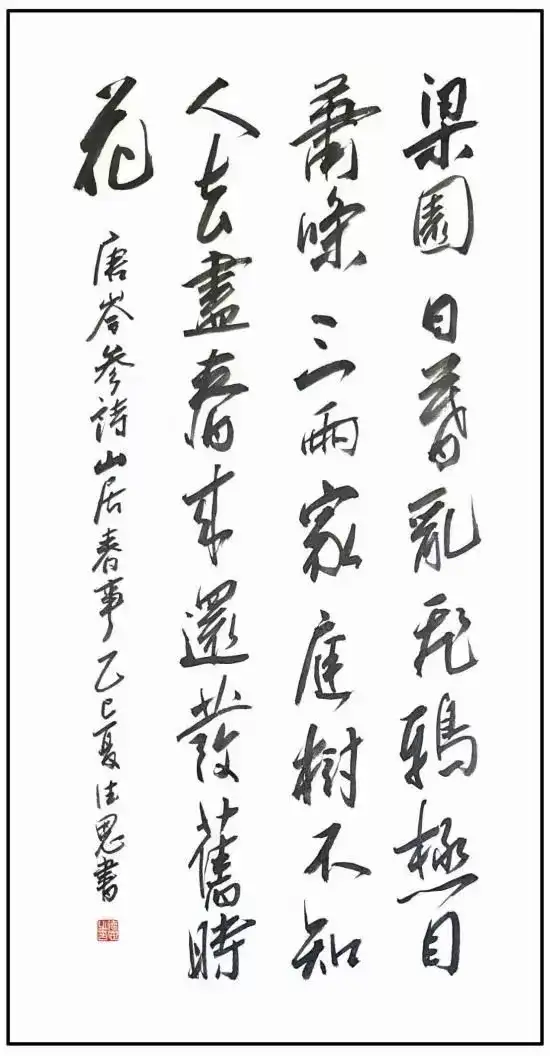 梁園日暮亂飛鴉極目
蕭條三兩家庭樹不知
人去盡春來還發舊時
花
唐岑參詩山居春事乙巳夏佳思書